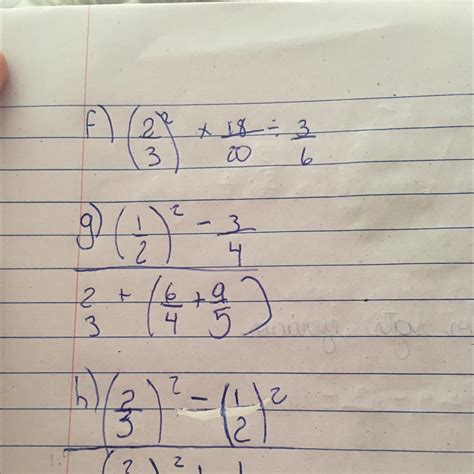 f) (2/3)² × 18/20 ÷ 3/6
g) (1/2)² - 3/4
2/3 + (6/4 + 9/5)
h) (2/3)² - (1/2)²